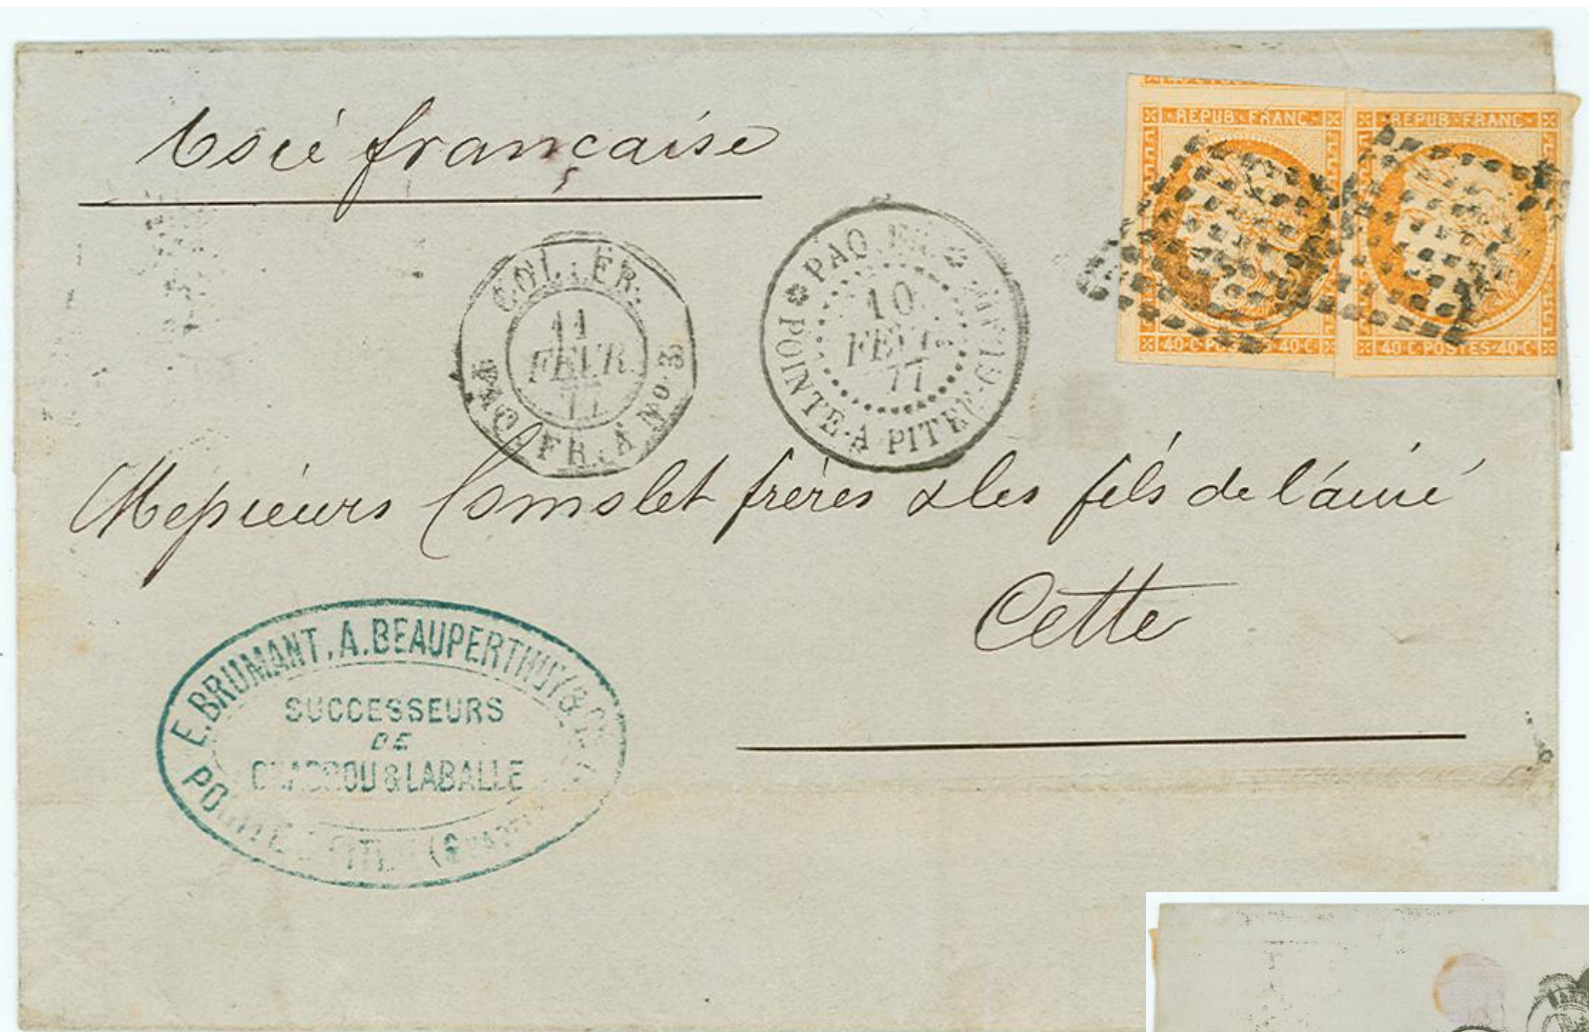 Voie française
REPUB FRANC
40 C POSTES 40 C
REPUB FRANC
40 C POSTES 40 C
COL. FR.
11
FEVR.
77
PAQ. FR. A No 3
PAQ. FR.
10
FEVR.
77
POINTE-A-PITRE
Messieurs frères & les fils de l'aîné
Cette
E. BRUMANT, A. BEAUPERTHUY & Cie
SUCCESSEURS
DE
& LABALLE
POINTE A PITRE